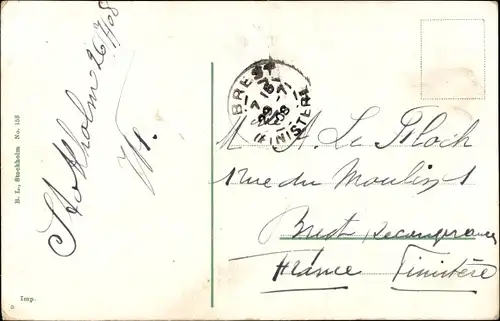 Stockholm 26/7 08
B. L., Stockholm No. 158
Imp.
BREST
7 15
29 -7
08
FINISTERE
M A. Le Floch
1 rue du Moulin 1
Brest
France Finistère